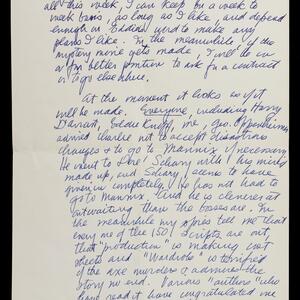 all this week, I can keep on a week to
week basis, as long as I like, and depend
enough on Eddie's word to make any
plans I like. In the meanwhile if the
mystery movie gets made I will be in
a far better position to ask for a contract
or to go elsewhere.
At the moment it looks as if it
will be made. Everyone, including Harry
Eddie Knopf, me, Geo. Oppenheimer
advised Charlie not to accept
changes & to go to Mannix if necessary.
He went to Dore Schary with his mind
made up, and Schary seems to have
given in completely. He has not had to
go to Mannix. And he is cleverer at
outwaiting than the bosses are. In
the meanwhile my spies tell me that
every one of the 150 scripts are out,
that "production" is making cost
sheets and "Wardrobe" is terrified
of the axe murders & admires the
story no end. Various "authors" who
have read it have congratulated me